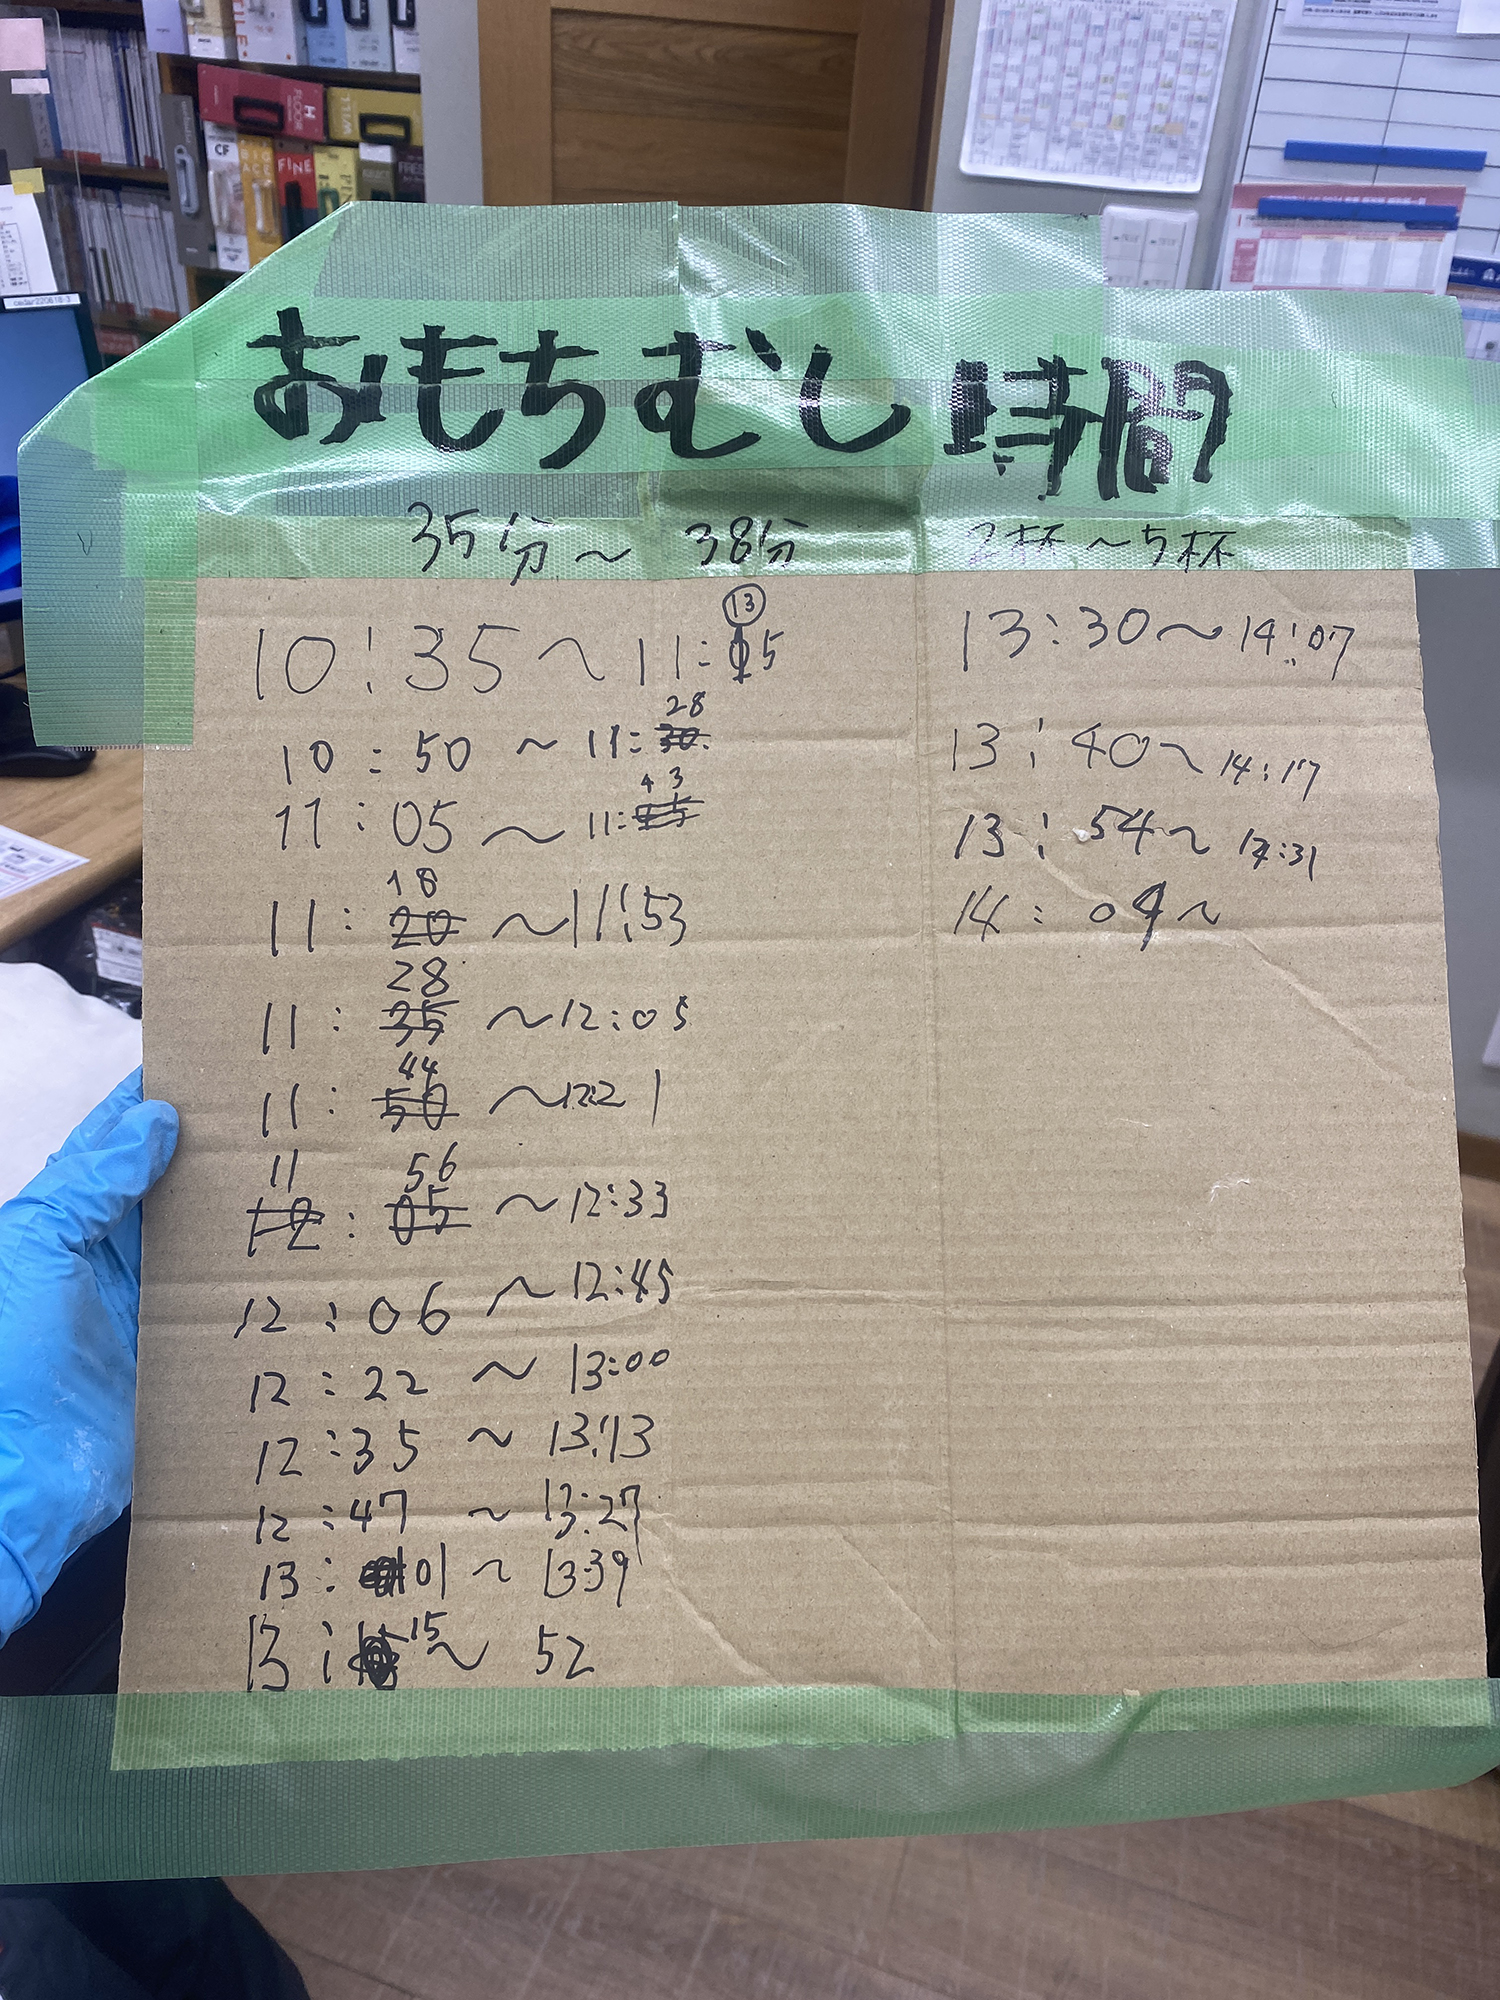 CF
FINE
H
FLOOR
WILL
FREE
おもちむし時間
35分〜38分
2杯〜5杯
10:35〜11:05
13
10:50〜11:30
28
11:05〜11:
43
11:20〜11:53
18
11:35〜12:05
28
11:50〜12:21
44
12:05〜12:33
11 56
12:06〜12:45
12:22〜13:00
12:35〜13:13
12:47〜13:27
13:01〜13:39
13:15〜52
13:30〜14:07
13:40〜14:17
13:54〜14:31
14:04〜